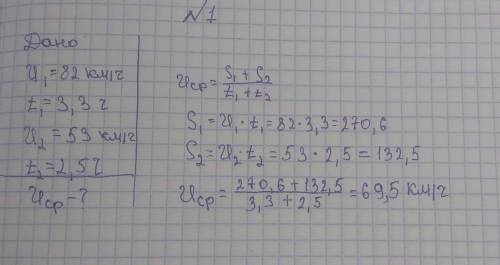 №1
Дано
U₁=82 км/ч
t₁=3,3 ч
U₂=53 км/ч
t₂=2,5 ч
Uср-?
Uср=(S₁+S₂)/(t₁+t₂)
S₁=U₁·t₁=82·3,3=270,6
S₂=U₂·t₂=53·2,5=132,5
Uср=(270,6+132,5)/(3,3+2,5)=69,5 км/ч